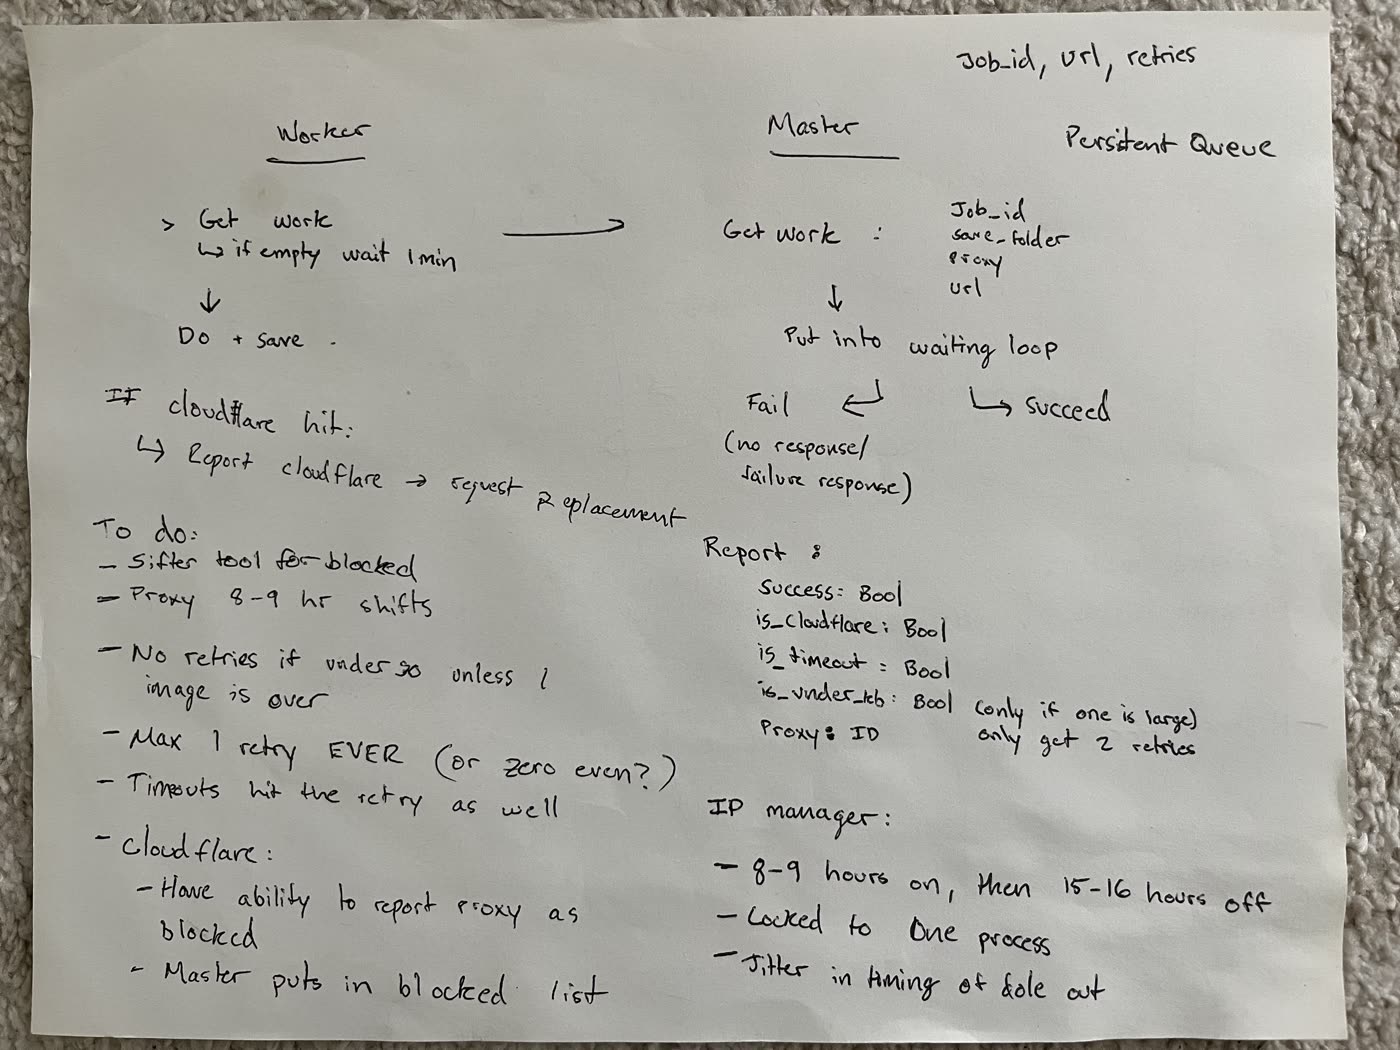 Job_id, url, retries
Persistent Queue
Worker
> Get work
↳ if empty wait 1 min
↓
Do + save
If cloudflare hit:
↳ Report cloudflare → request Replacement
To do:
- Sifter tool for blocked
- Proxy 8-9 hr shifts
- No retries if under 50 unless 1
image is over
- Max 1 retry EVER (or zero even?)
- Timeouts hit the retry as well
- Cloudflare:
- Have ability to report proxy as
blocked
- Master puts in blocked list
Master
Get work :
Job_id
save_folder
proxy
url
↓
Put into waiting loop
Fail ↩ ↳ succeed
(no response/
failure response)
Report :
Success: Bool
is_cloudflare: Bool
is_timeout = Bool
is_under_kb: Bool (only if one is large)
only get 2 retries
Proxy: ID
IP manager:
- 8-9 hours on, then 15-16 hours off
- Locked to One process
- Jitter in timing of dole out